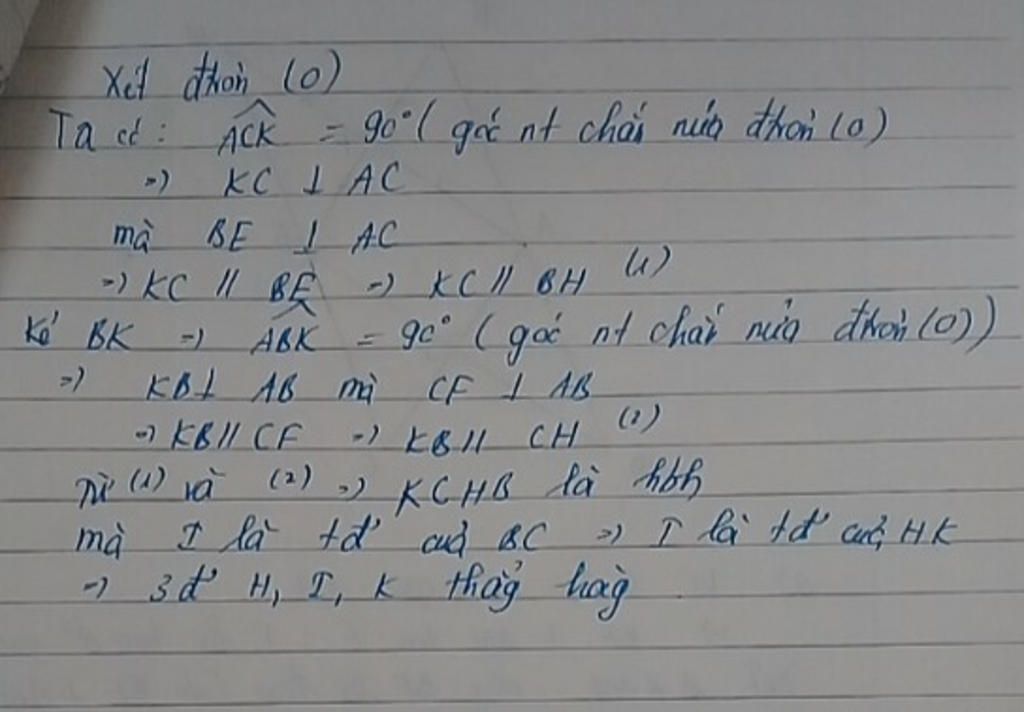 Xét đtròn (O)
Ta có: ACK = 90° ( góc nt chắn nửa đtròn (O)
=> KC ⊥ AC
mà BE ⊥ AC
=> KC // BE => KC // BH (1)
Kẻ BK => ABK = 90° ( góc nt chắn nửa đtròn (O))
=> KB ⊥ AB mà CF ⊥ AB
=> KB // CF => KB // CH (2)
Từ (1) và (2) => KCHB là hbh
mà I là tđ' của BC => I là tđ' của HK
=> 3 đ' H, I, K thẳg hàg